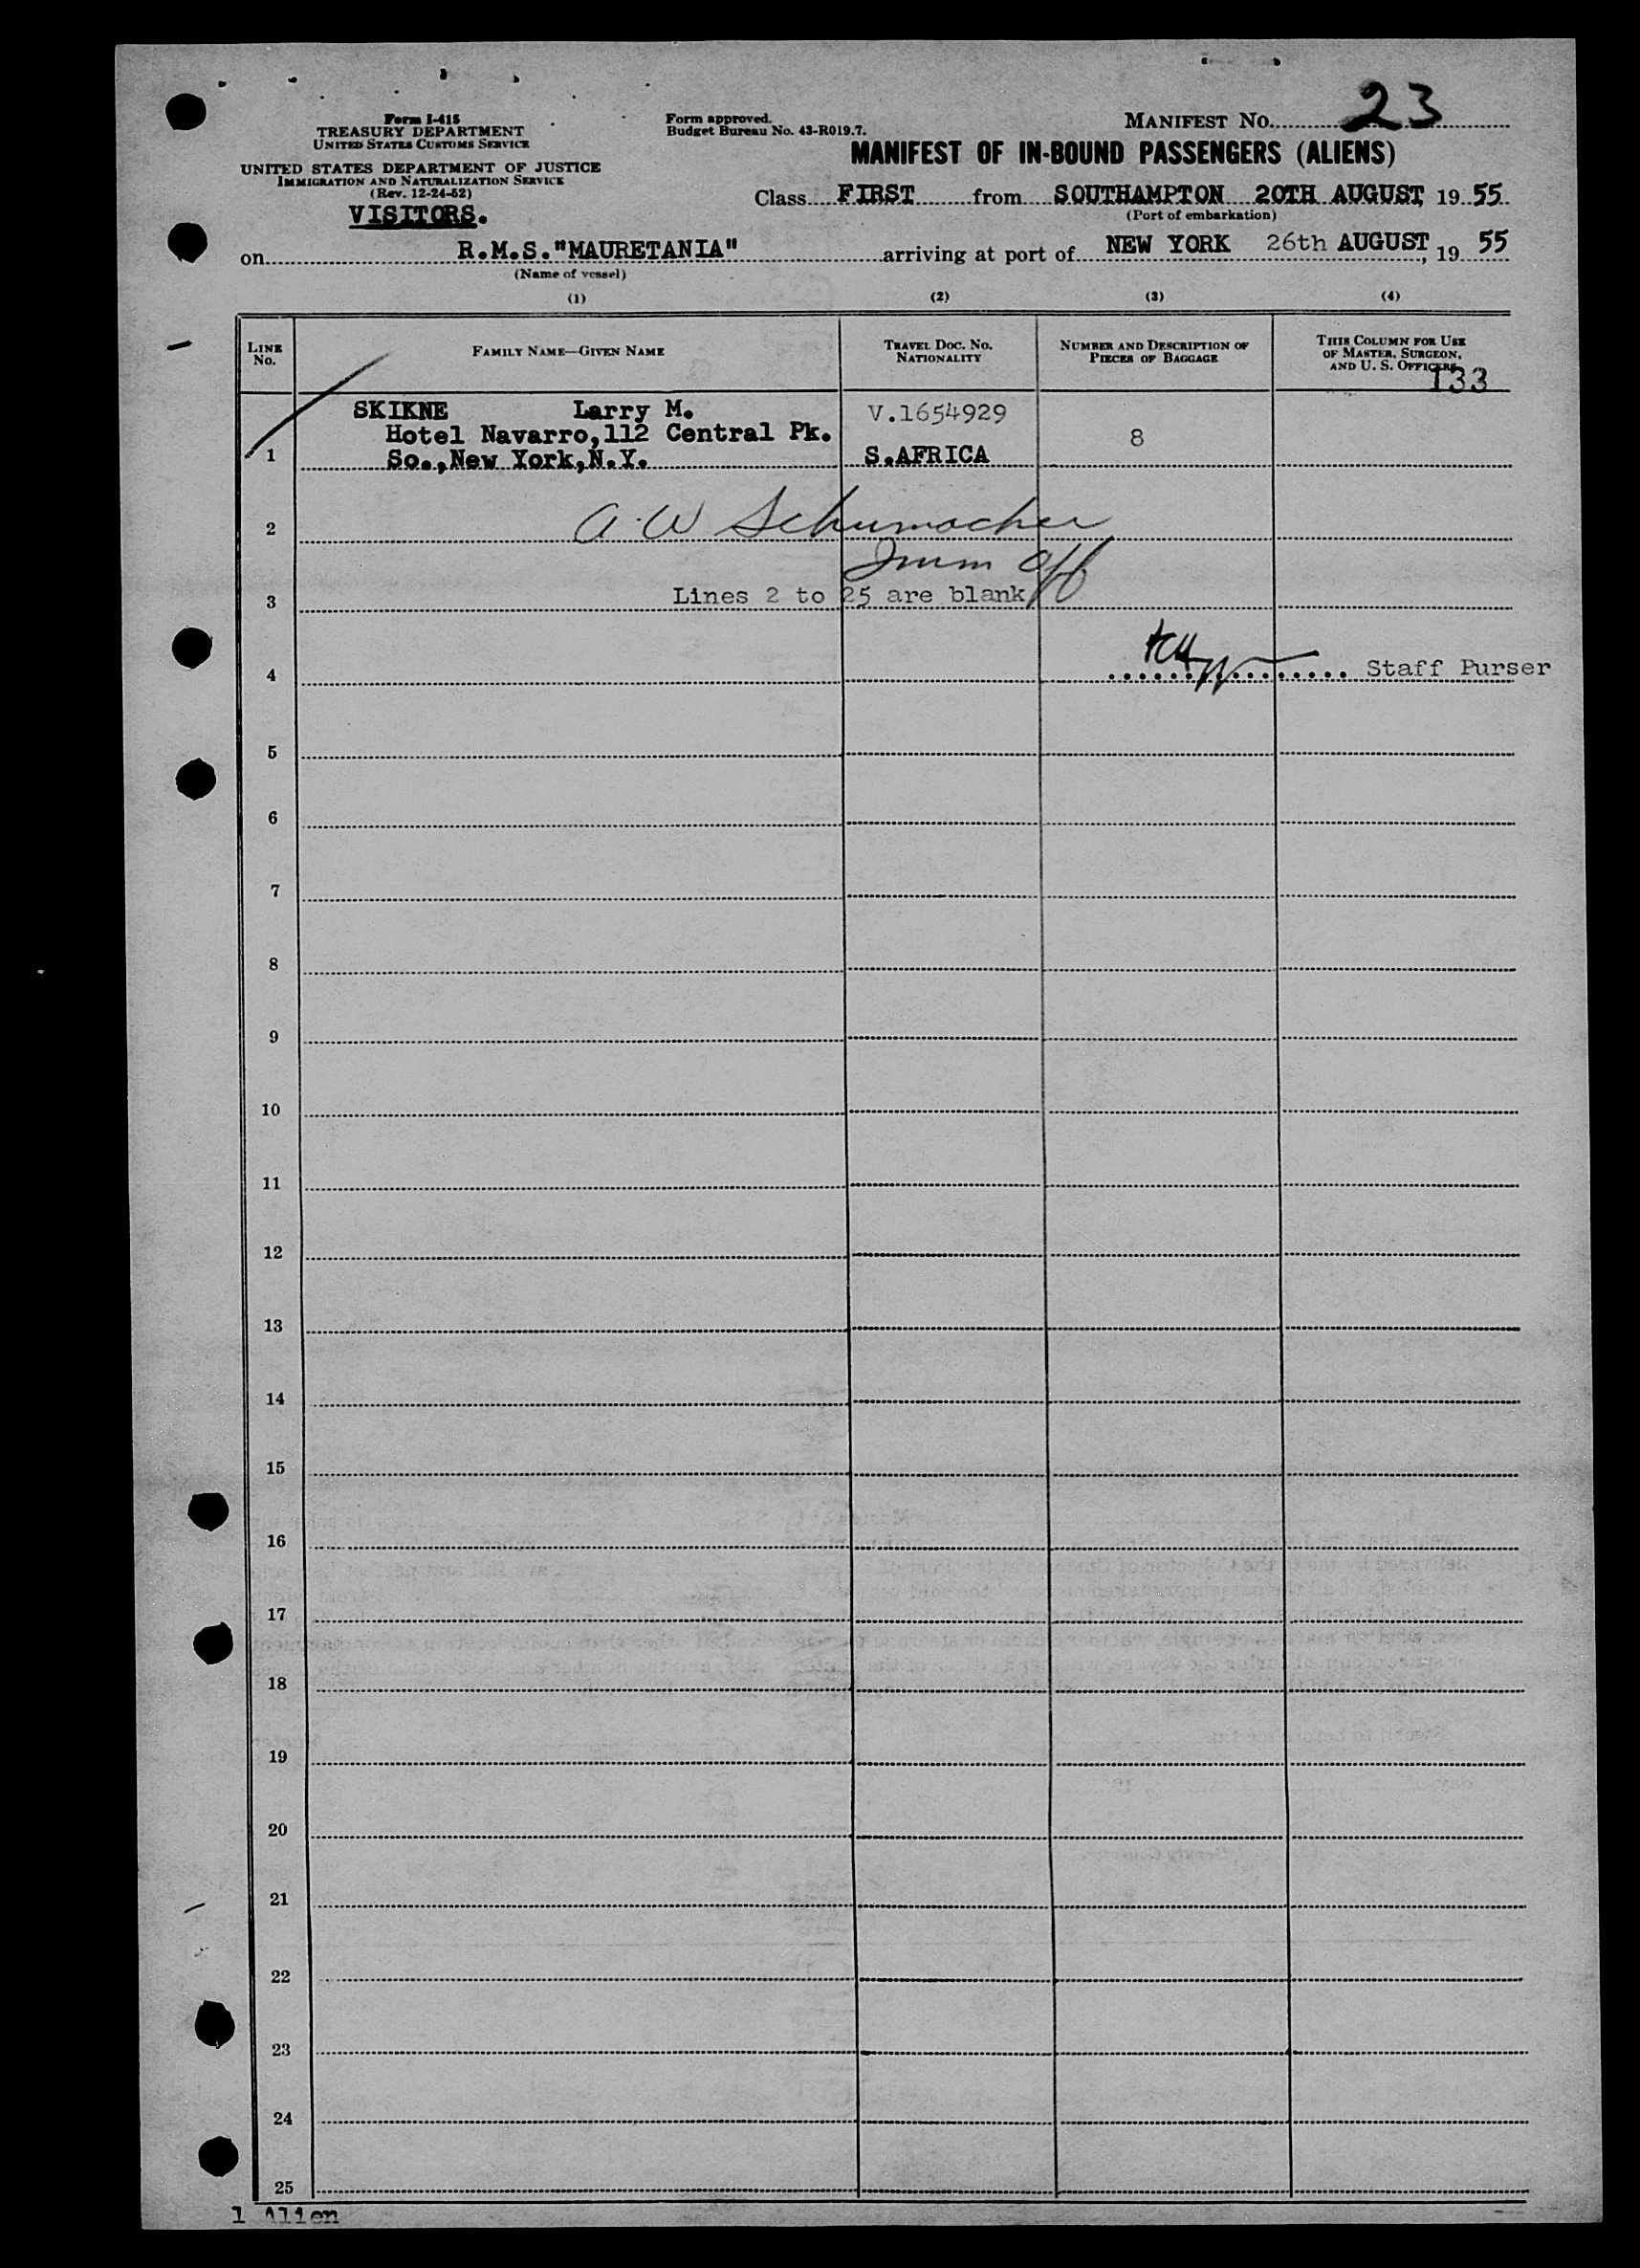 Form I-415
TREASURY DEPARTMENT
UNITED STATES CUSTOMS SERVICE
UNITED STATES DEPARTMENT OF JUSTICE
IMMIGRATION AND NATURALIZATION SERVICE
(Rev. 12-24-52)
VISITORS.
Form approved.
Budget Bureau No. 43-R019.7.
MANIFEST NO. 23
MANIFEST OF IN-BOUND PASSENGERS (ALIENS)
Class FIRST from SOUTHAMPTON 20TH AUGUST, 19 55
(Port of embarkation)
on R.M.S."MAURETANIA" arriving at port of NEW YORK 26th AUGUST, 19 55
(Name of vessel)
(1) (2) (3) (4)
LINE No. FAMILY NAME—GIVEN NAME TRAVEL DOC. NO. NATIONALITY NUMBER AND DESCRIPTION OF PIECES OF BAGGAGE THIS COLUMN FOR USE OF MASTER, SURGEON, AND U. S. OFFICERS
133
SKIKNE Larry M. V.1654929
Hotel Navarro,112 Central Pk. 8
1 So.,New York,N.Y. S.AFRICA
2 A.W Schumacher
Imm Off
3 Lines 2 to 25 are blank
4 Staff Purser
5
6
7
8
9
10
11
12
13
14
15
16
17
18
19
20
21
22
23
24
25
1 Alien